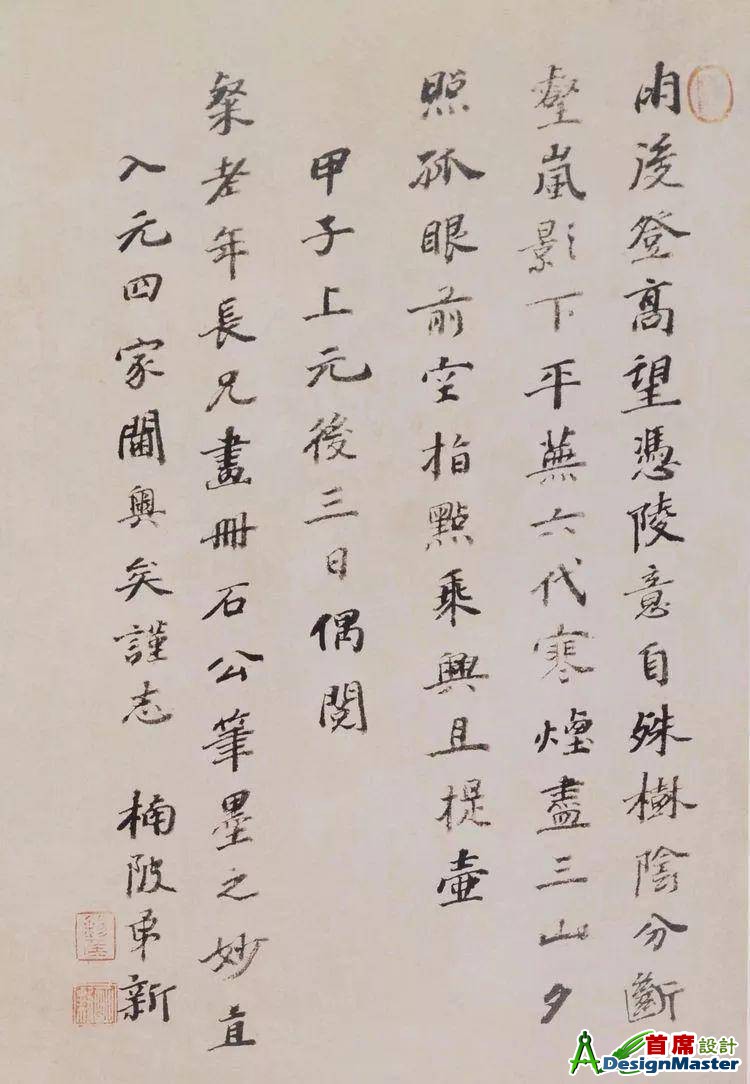 雨後登高望憑陵意自殊樹陰分斷
壑嵐影下平蕪六代寒煙盡三山夕
照孤眼前空指點乘興且提壺
甲子上元後三日偶閱
粲老年長兄畫冊石公筆墨之妙直
入元四家閫奧矣謹志 楠陂弟新
首席設計
ADesignMaster